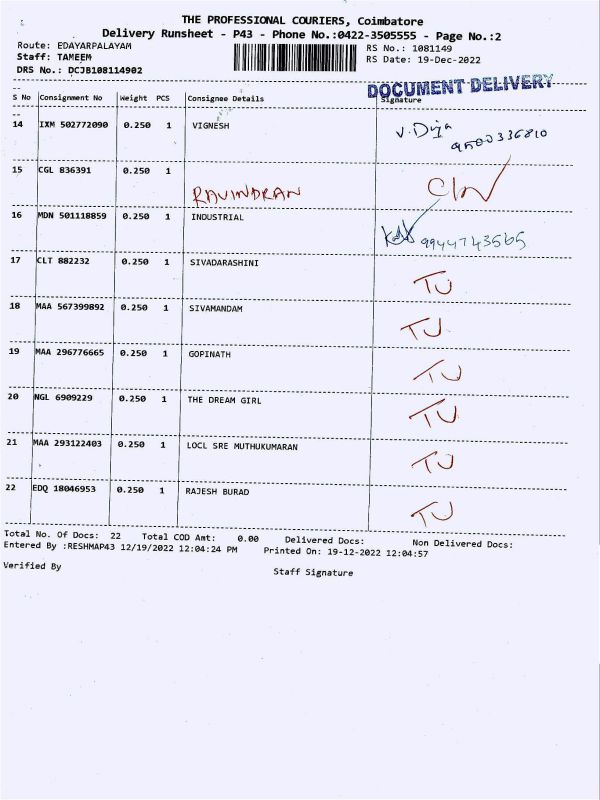 THE PROFESSIONAL COURIERS, Coimbatore
Delivery Runsheet - P43 - Phone No.:0422-3505555 - Page No.:2
Route: EDAYARPALAYAM RS No.: 1081149
Staff: TAMEEM RS Date: 19-Dec-2022
DRS No.: DCJB108114902
DOCUMENT DELIVERY
S No Consignment No Weight PCS Consignee Details Signature
14 IXM 502772090 0.250 1 VIGNESH V. Dija
9500336810
15 CGL 836391 0.250 1
RAVINDRAN
16 MDN 501118859 0.250 1 INDUSTRIAL
9944743565
17 CLT 882232 0.250 1 SIVADARASHINI TU
18 MAA 567399892 0.250 1 SIVAMANDAM TU
19 MAA 296776665 0.250 1 GOPINATH TU
20 NGL 6909229 0.250 1 THE DREAM GIRL TU
21 MAA 293122403 0.250 1 LOCL SRE MUTHUKUMARAN TU
22 EDQ 18046953 0.250 1 RAJESH BURAD TU
Total No. Of Docs: 22 Total COD Amt: 0.00 Delivered Docs: Non Delivered Docs:
Entered By :RESHMAP43 12/19/2022 12:04:24 PM Printed On: 19-12-2022 12:04:57
Verified By Staff Signature